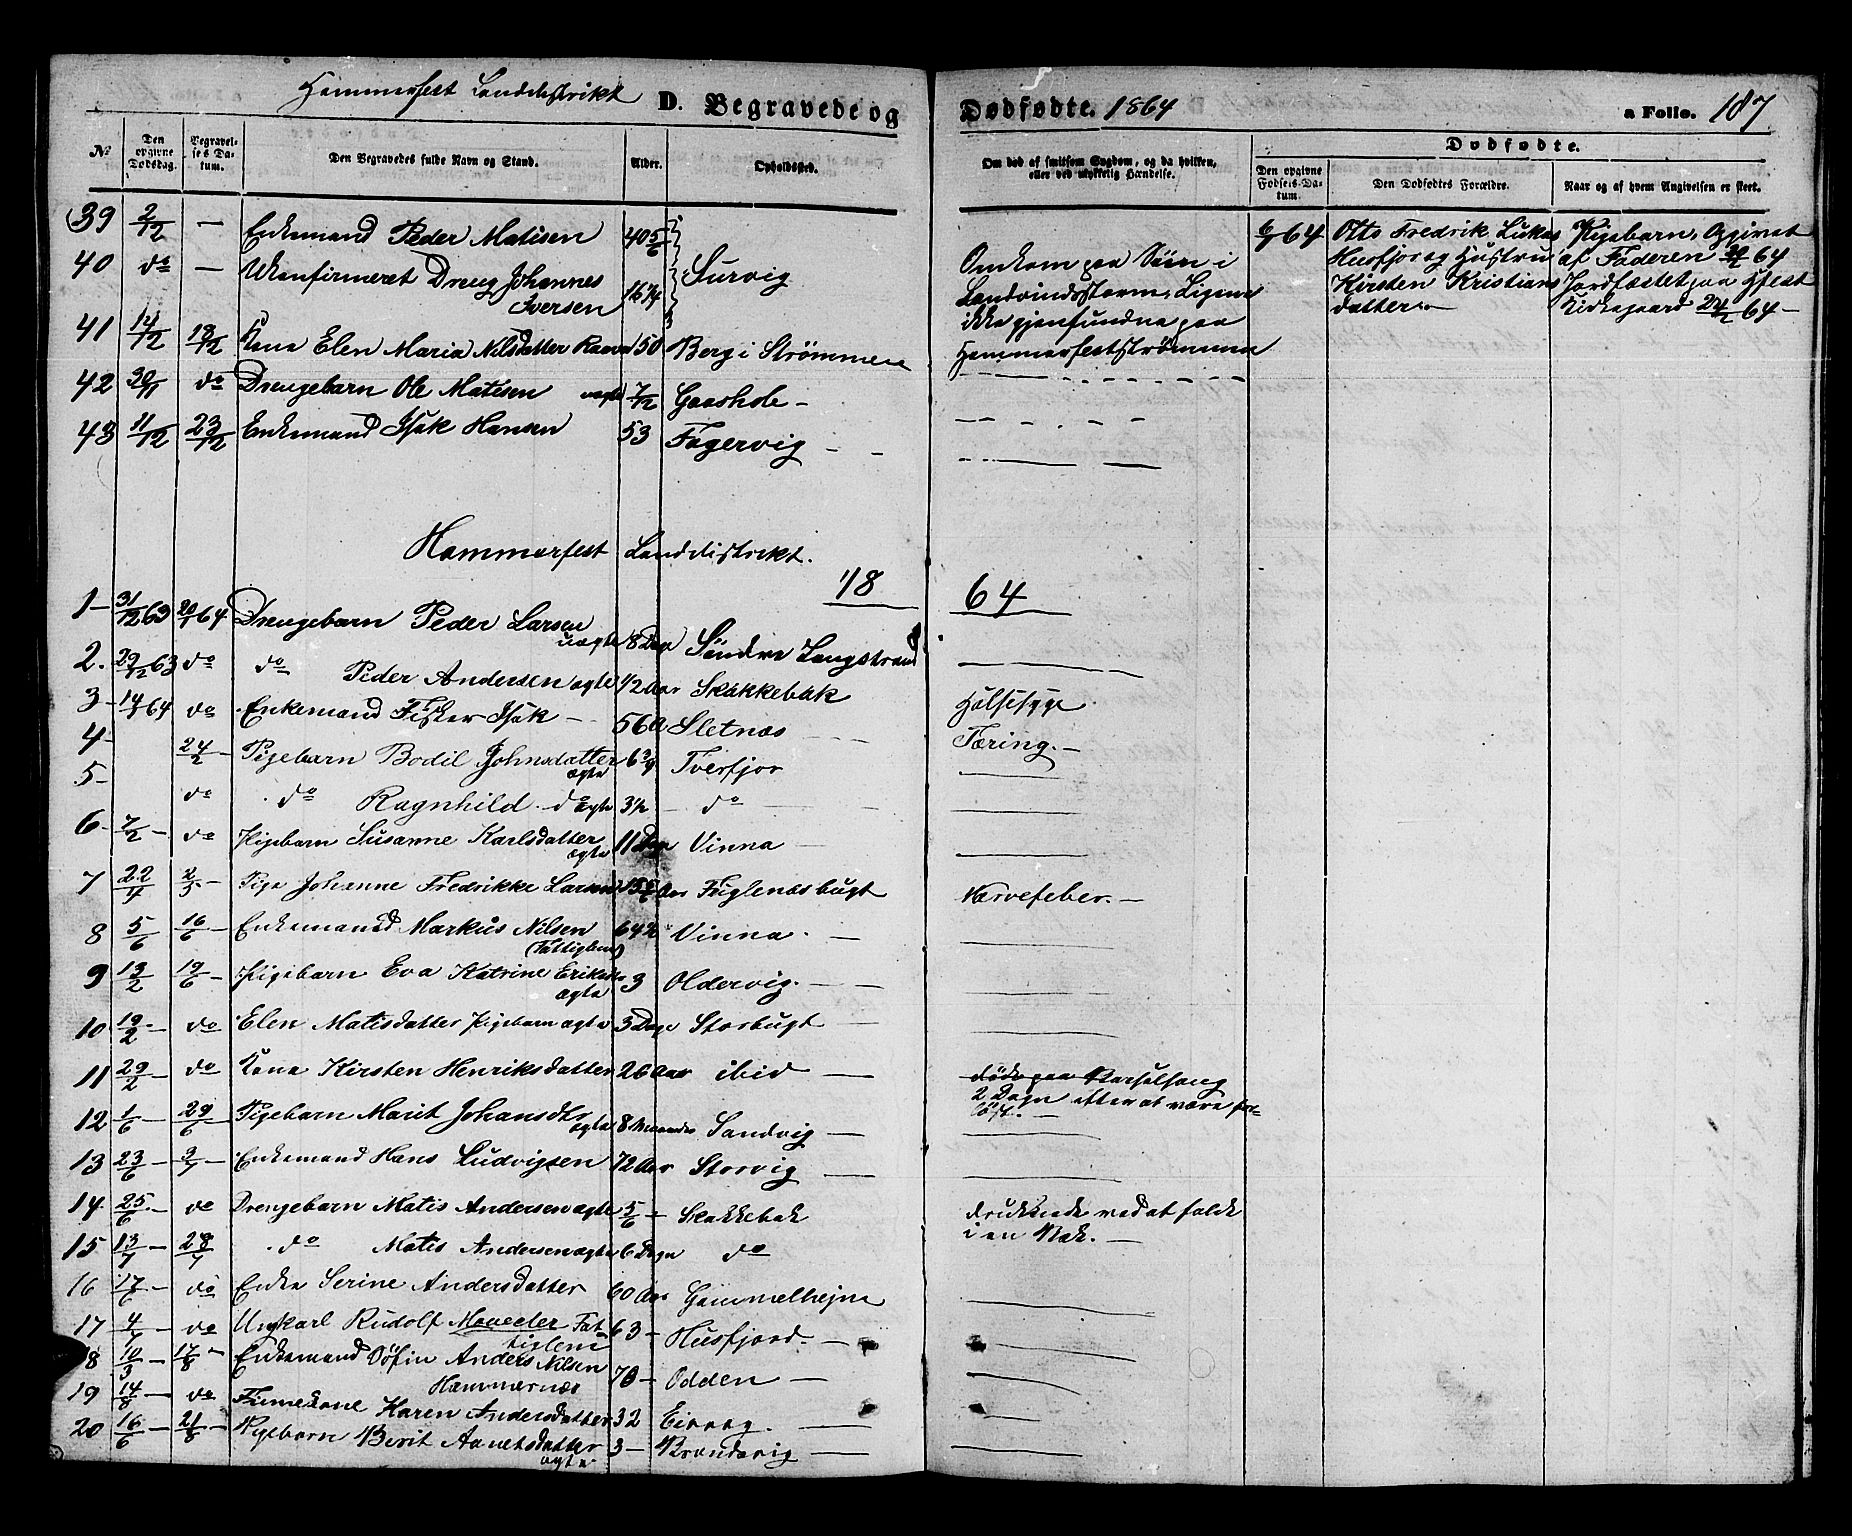 Hammerfest Landdistrikt D. Begravede og Dødfødte. 1864 a Folio. 187
No Den opgivne Dødsdag. Begravelses Datum. Den Begravedes fulde Navn og Stand. Alder. Opholdssted. Om død af smitsom Sygdom, og da hvilken, eller ved ulykkelig Hændelse. Dødfødte.
Den opgivne Fødsels-Datum. Den Dødfødtes Forældre. Naar og af hvem Angivelsen er skeet.
39 2/12 — Enkemand Peder Matisen 40 5/6
40 do — Ukonfirmeret Dreng Johannes Iversen 16 1/4 Survig
Omkom paa Søen i
Landvindsstorm, Ligene
ikke gjenfundne paa
Hammerfeststrømmen
6/1 64 Otto Fredrik Lukas Pigebarn, Opgivet
Husfjor og Hustru af Faderen
Kirsten Kristians Jordfæstet paa Hfest
datter. Kirkegaard 24/2 64 —
41 14/12 18/12 Kona Elen Maria Nilsdatter 50 Berg i Strømmen
42 30/11 do Drengebarn Ole Matisen uægte 7/12 Gaashole —
43 11/12 23/12 Enkemand Isak Hansen 53 Fagervig — —
Hammerfest Landdistrikt.
18 64
1 — 31/12 63 20/1 64 Drengebarn Peder Larsen uægte 8 Dage Søndre Langstrand
2. 29/12 63 do do Peder Andersen ægte 1/2 Aar Skakkebak
3 — 14/1 64 do Enkemand Fisker Isak — 56 Sletnæs Halssyge
4 — 24/2 — Pigebarn Bodil Johnsdatter ægte 6 3/4 Tverfjor Tæring. —
5 — do do Ragnhild do ægte 3 1/2 — do —
6 — 7/2 — do Pigebarn Susanne Karlsdatter ægte 11 Dage Vinna —
7 22/4 2/5 — Pige Johanne Fredrikke Larsen 15 Aar Fuglenæsbugt Nervefeber. —
8 5/6 16/6 — Enkemand Markus Nilsen (Fattiglem) 64 1/2 Vinna. —
9 13/2 19/6 — Pigebarn Eva Katrine Eriksdtr ægte 3 Oldervig. —
10 19/2 — do Elen Matisdatter Pigebarn ægte 3 Dage Storbugt —
11 29/2 — do Kona Kirsten Henriksdatter 26 Aar ibid — døde paa Barselseng
2 Dage efter at være for-
løst. —
12 1/6 — 29/6 — Pigebarn Marit Johansdtr ægte 8 Maaneder Sandvig —
13 23/6 — 3/7 — Enkemand Hans Ludvigsen 72 Aar Storvig —
14 25/6 — do Drengebarn Matis Andersen ægte 5/6 — Skakkebak druknede ved at falde
i en Bæk. —
15 13/7 — 28/7 do Matis Andersen ægte 6 Dage do
16 17/6 — do Enke Serine Andersdatter 60 Aar Gammelhejne
17 4/7 — do Ungkarl Rudolf Fattiglem 63 — Husfjord. —
18 10/3 — 17/8 — Enkemand Anders Nilsen Hammernæs 70 — Odden —
19 14/8 — do Finnekone Karen Andersdatter 32 Eivaag. —
20 16/6 — 21/8 — Pigebarn Berit ægte 3 — Brandvig —